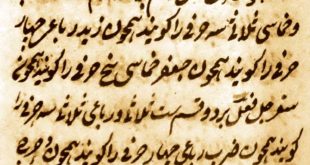 و خماسی ثلاثی سه حرفی را گویند همچون زید رباعی چهار
حرفی را گویند همچون جعفر خماسی پنج حرفی را گویند همچون
سفرجل فعل بر دو قسمت ثلاثی و رباعی ثلاثی سه حرفی را
گویند همچون ضرب رباعی چهار حرفی را گویند همچون دحرج